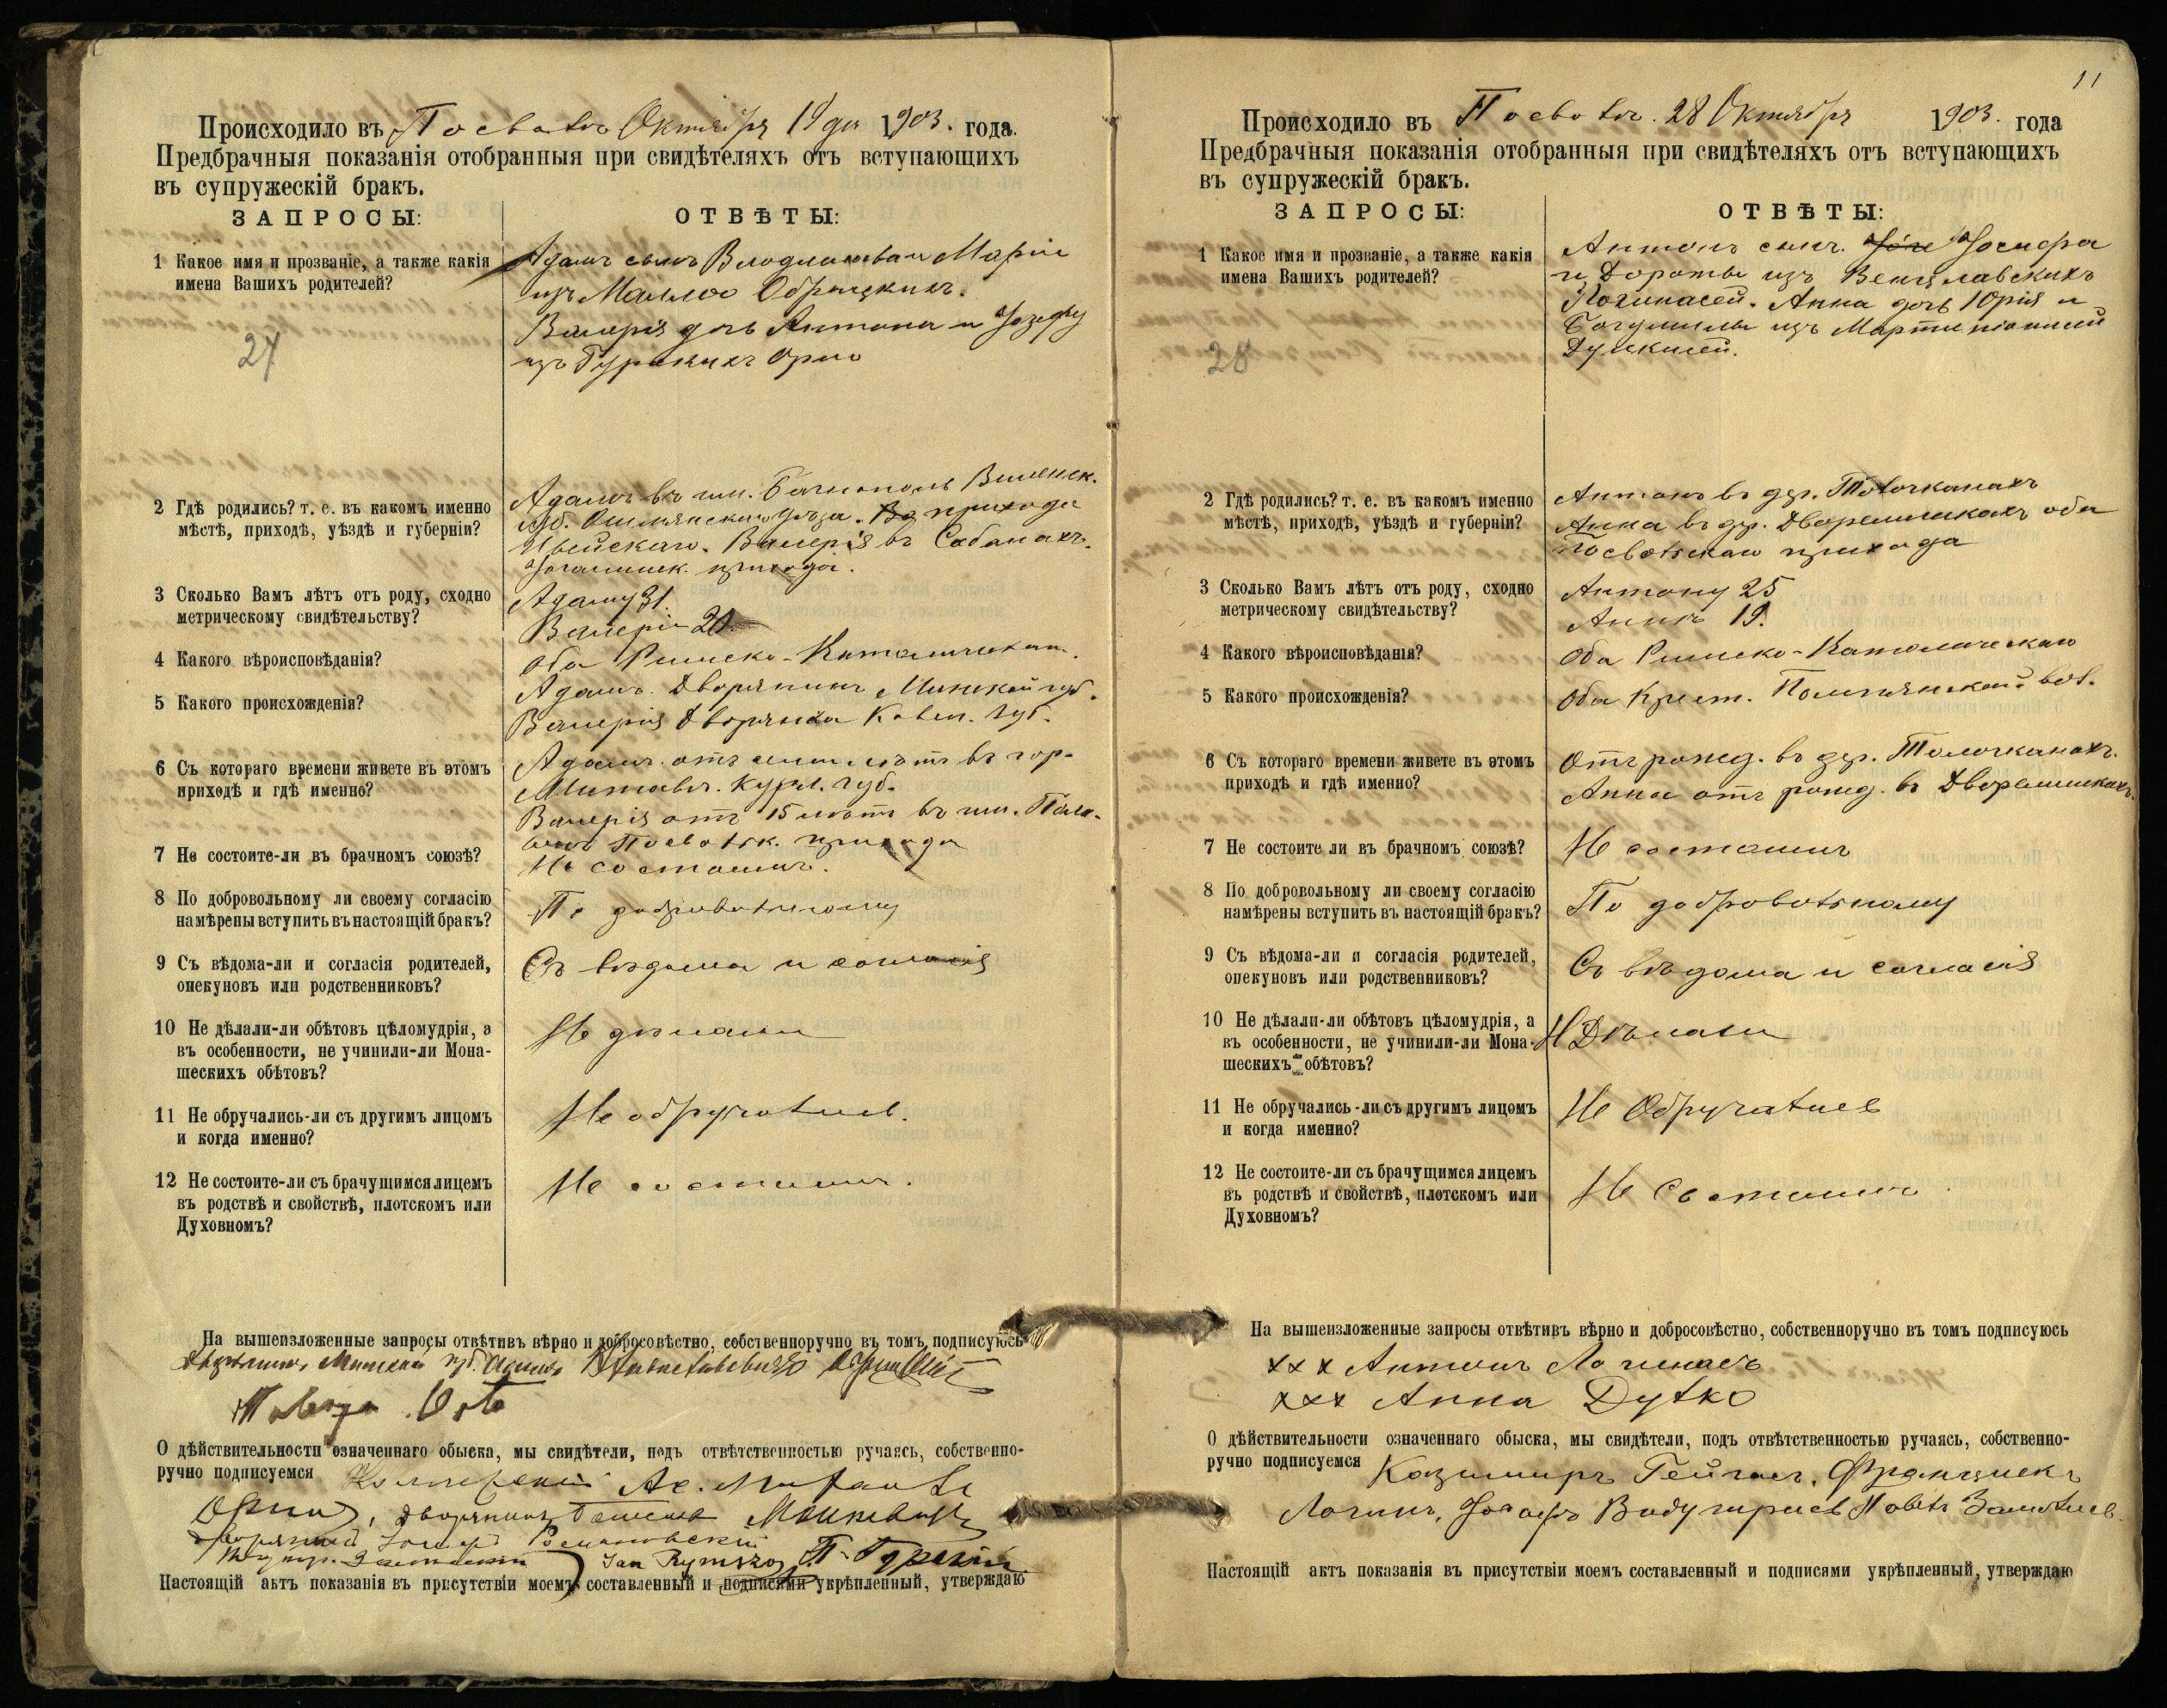 Происходило въ Посволь Октября 19 дн 1903. года.
Предбрачныя показанія отобранныя при свидѣтеляхъ отъ вступающихъ
въ супружескій бракъ.
ЗАПРОСЫ:
ОТВѢТЫ:
1 Какое имя и прозваніе, а также какія
имена Вашихъ родителей?
Адамъ сынъ и Маріи
изъ
Валерія дочь Антона и
изъ Гурскихъ
27
2 Гдѣ родились? т. е. въ какомъ именно
мѣстѣ, приходѣ, уѣздѣ и губерніи?
Адамъ въ им. Виленск.
губ. Ошмянскаго уѣзда. прихода
Ивейскаго. Валерія въ
прихода.
3 Сколько Вамъ лѣтъ отъ роду, сходно
метрическому свидѣтельству?
Адаму 31.
Валеріи 20.
4 Какого вѣроисповѣданія?
Оба Римско-Католическаго.
5 Какого происхожденія?
Адамъ. Дворянинъ Минской губ.
Валерія Дворянка Ковен. губ.
6 Съ котораго времени живете въ этомъ
приходѣ и гдѣ именно?
Адамъ отъ лѣтъ въ гор.
Митавѣ. Курл. губ.
Валерія отъ 15 лѣтъ въ им.
Посвольск. прихода
7 Не состоите-ли въ брачномъ союзѣ?
Не состоимъ.
8 По добровольному ли своему согласію
намѣрены вступить въ настоящій бракъ?
По добровольному
9 Съ вѣдома-ли и согласія родителей,
опекуновъ или родственниковъ?
Съ вѣдома и согласія
10 Не дѣлали-ли обѣтовъ цѣломудрія, а
въ особенности, не учинили-ли Мона-
шескихъ обѣтовъ?
Не дѣлали
11 Не обручались-ли съ другимъ лицомъ
и когда именно?
Не обручались.
12 Не состоите-ли съ брачущимся лицемъ
въ родствѣ и свойствѣ, плотскомъ или
Духовномъ?
Не состоимъ.
На вышеизложенные запросы отвѣтивъ вѣрно и добросовѣстно, собственноручно въ томъ подписуюсь
Дворянинъ Минской губ.
О дѣйствительности означеннаго обыска, мы свидѣтели, подъ отвѣтственностью ручаясь, собственно-
ручно подписуемся
дворянинъ
Дворянинъ
Jan Rymszo П. Гурскій
Настоящій актъ показанія въ присутствіи моемъ составленный и подписями укрѣпленный, утверждаю
11
Происходило въ Посволь. 28 Октября 1903. года
Предбрачныя показанія отобранныя при свидѣтеляхъ отъ вступающихъ
въ супружескій бракъ.
ЗАПРОСЫ:
ОТВѢТЫ:
1 Какое имя и прозваніе, а также какія
имена Вашихъ родителей?
Антонъ сынъ. Іосифа
и Дороты изъ Венцлавскихъ
Анна дочь Юрія и
Богумилы изъ
28
2 Гдѣ родились? т. е. въ какомъ именно
мѣстѣ, приходѣ, уѣздѣ и губерніи?
Антонъ въ дер. Толочканахъ
Анна въ дер. Дворелишкахъ оба
Посвольскаго прихода
3 Сколько Вамъ лѣтъ отъ роду, сходно
метрическому свидѣтельству?
Антону 25
Аннѣ 19.
4 Какого вѣроисповѣданія?
Оба Римско-Католическаго
5 Какого происхожденія?
Оба Крест. вол.
6 Съ котораго времени живете въ этомъ
приходѣ и гдѣ именно?
Отъ рожд. въ дер. Толочканахъ.
Анна отъ рожд. въ Дворелишкахъ.
7 Не состоите ли въ брачномъ союзѣ?
Не состоимъ
8 По добровольному ли своему согласію
намѣрены вступить въ настоящій бракъ?
По добровольному
9 Съ вѣдома-ли и согласія родителей,
опекуновъ или родственниковъ?
Съ вѣдома и согласія
10 Не дѣлали-ли обѣтовъ цѣломудрія, а
въ особенности, не учинили-ли Мона-
шескихъ обѣтовъ?
Не Дѣлали
11 Не обручались-ли съ другимъ лицомъ
и когда именно?
Не Обручались
12 Не состоите-ли съ брачущимся лицемъ
въ родствѣ и свойствѣ, плотскомъ или
Духовномъ?
Не Состоимъ
На вышеизложенные запросы отвѣтивъ вѣрно и добросовѣстно, собственноручно въ томъ подписуюсь
xxx Антонъ
xxx Анна Дулко
О дѣйствительности означеннаго обыска, мы свидѣтели, подъ отвѣтственностью ручаясь, собственно-
ручно подписуемся Казимиръ Францискъ
Іосифъ
Настоящій актъ показанія въ присутствіи моемъ составленный и подписями укрѣпленный, утверждаю